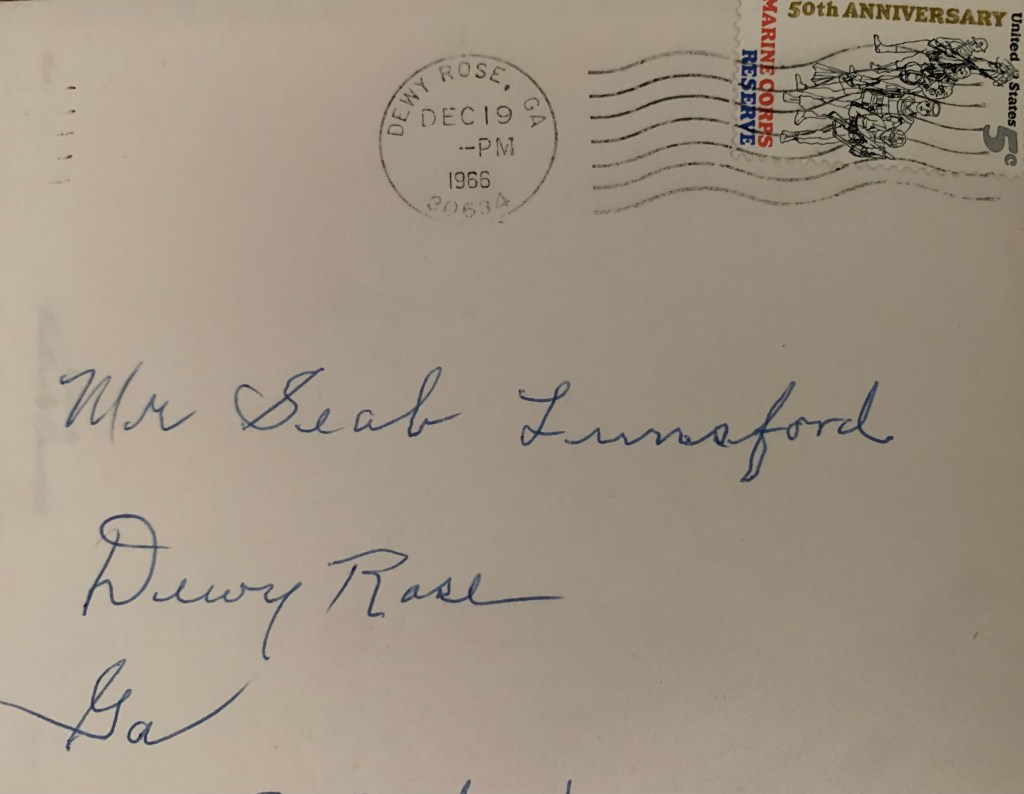 50th ANNIVERSARY
United States
5c
MARINE CORPS
RESERVE
DEWY ROSE, GA
DEC 19
--PM
1966
30634
Mr Seab Lunsford
Dewy Rose
Ga